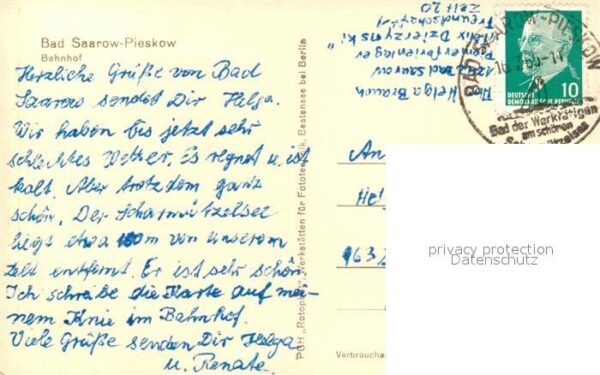 Bad Saarow-Pieskow
Bahnhof
Herzliche Grüße von Bad
Saarow sendet Dir Helga.
Wir haben bis jetzt sehr
schlechtes Wetter. Es regnet u. ist
kalt. Aber trotzdem ganz
schön. Der Scharmützelsee
liegt etwa 100m von unserem
Zelt entfernt. Er ist sehr schön.
Ich schreibe die Karte auf mei-
nem Knie im Bahnhof.
Viele Grüße senden Dir Helga
u. Renate.
Helga Brauch
Bad Saarow
Pionierferienlager
"Felix Dzierzynski"
Freundschaft
Zelt 20
PGH "Rotophot", Werkstätten für Fototechnik, Bestensee bei Berlin
BAD SAAROW-PIESKOW
Bad der Werktätigen
am schönen
10
DEUTSCHE
DEMOKRATISCHE REPUBLIK
An
Hel
1632
privacy protection
Datenschutz
Verbrauche